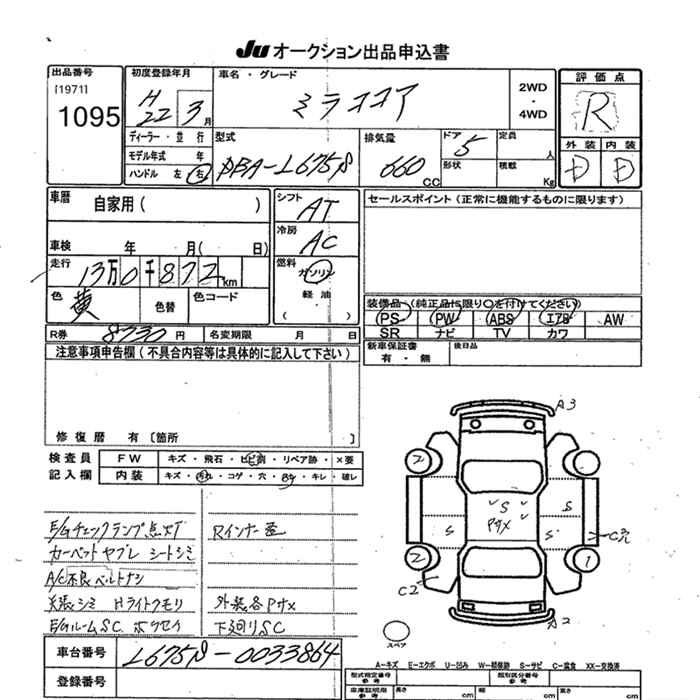 JU オークション出品申込書
出品番号
[1971]
1095
初度登録年月
H22 3月
車名・グレード
ミラココア
2WD
・
4WD
評価点
R
外装 内装
D D
ディーラー・並行
モデル年式 年
ハンドル 左 右
型式
DBA-L675S
排気量
660 CC
ドア
5
形状
定員
人
積載
Kg
車歴
自家用( )
車検 年 月( 日)
走行
13万0千872km
色
黄
色替
色コード
シフト
AT
冷房
AC
燃料
ガソリン
軽油
( )
セールスポイント(正常に機能するものに限ります)
装備品(純正品に限り○を付けてください)
PS PW ABS エアB AW
SR ナビ TV カワ
新車保証書
有・無
後日品
R券 8730円
名変期限 月 日
注意事項申告欄(不具合内容等は具体的に記入して下さい)
修復歴 有〔箇所 〕
検査員
記入欄
FW キズ・飛石・ヒビ割・リペア跡・×要
内装 キズ・汚れ・コゲ・穴・ヨゴ・キレ・破レ
E/Gチェックランプ点灯
Rインナー歪
カーペットヤブレ シートシミ
A/C不良 ベルトナシ
天張シミ Hライトクモリ
外装各Pサメ
E/GルームSC ホウセイ
下廻りSC
車台番号
L675S-0033864
登録番号
A3
2
2
2
1
S
Pサメ
S
S
S
C穴
C2
A2
スペア
A−キズ E−エクボ U−凹み W−補修跡 S−サビ C−腐食 XX−交換済
型式指定番号
参考
類別区分番号
参考
車庫証明用
参考
長さ cm
幅 cm
高さ cm